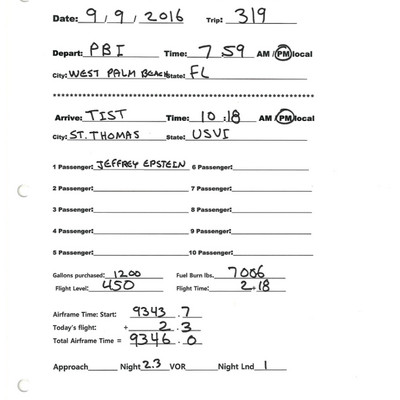 Date: 9/9/2016 Trip: 319
Depart: PBI Time: 7:59 AM / PM local
City: WEST PALM BEACH State: FL
Arrive: TIST Time: 10:18 AM / PM local
City: ST. THOMAS State: USVI
1 Passenger: JEFFREY EPSTEIN 6 Passenger:
2 Passenger: 7 Passenger:
3 Passenger: 8 Passenger:
4 Passenger: 9 Passenger:
5 Passenger: 10 Passenger:
Gallons purchased: 1200 Fuel Burn lbs. 7006
Flight Level: 450 Flight Time: 2+18
Airframe Time: Start: 9343.7
Today's flight: + 2.3
Total Airframe Time = 9346.0
Approach Night 2.3 VOR Night Lnd 1